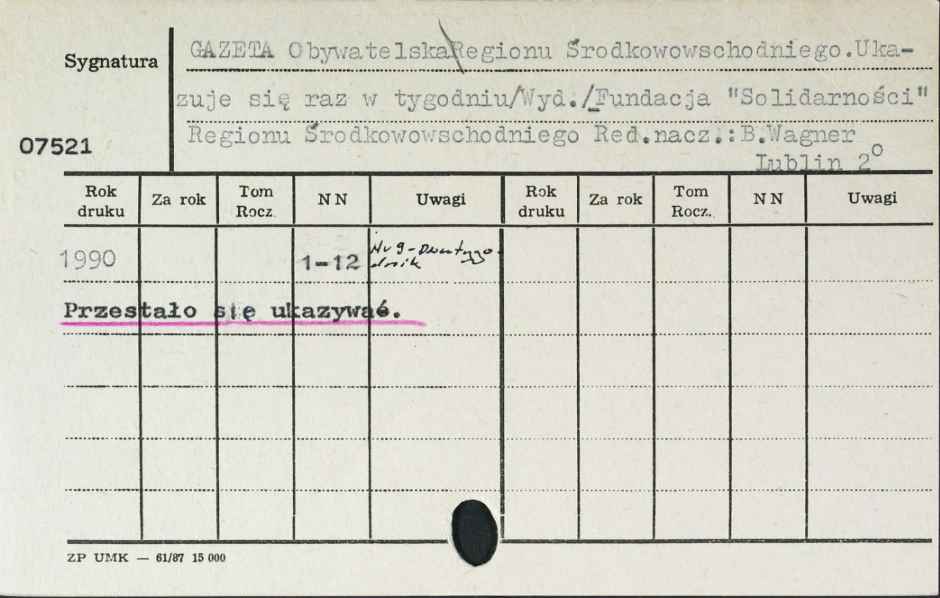 Sygnatura
07521
GAZETA Obywatelska Regionu Środkowowschodniego.Uka-
zuje się raz w tygodniu/Wyd./Fundacja "Solidarności"
Regionu Środkowowschodniego Red.nacz.:B.Wagner
Lublin 2°
Rok druku Za rok Tom Rocz. NN Uwagi Rok druku Za rok Tom Rocz. NN Uwagi
1990 1-12 Nr 9 - Dwutygo-
dnik
Przestało się ukazywać.
ZP UMK — 61/87 15 000